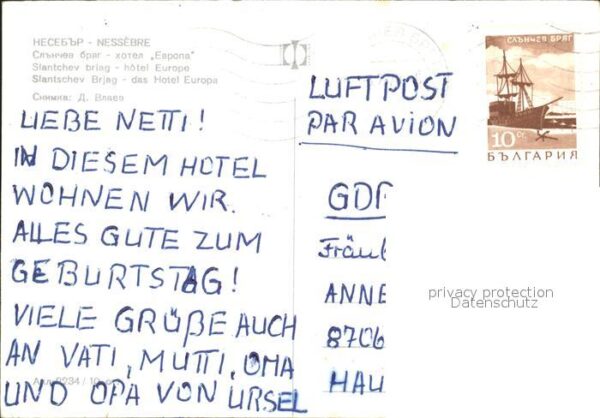 НЕСЕБЪР - NESSÈBRE
Слънчев бряг - хотел „Европа"
Slantchev briag - hôtel Europe
Slantschev Brjag - das Hotel Europa
Снимка: Д. Влаев
СЛЪНЧЕВ БРЯГ
10 СТ.
БЪЛГАРИЯ
LUFTPOST
PAR AVION
LIEBE NETTI!
IN DIESEM HOTEL
WOHNEN WIR.
ALLES GUTE ZUM
GEBURTSTAG!
VIELE GRÜßE AUCH
AN VATI, MUTTI, OMA
UND OPA VON URSEL
GDR
Fräul
ANNE
8706
HAU
privacy protection
Datenschutz